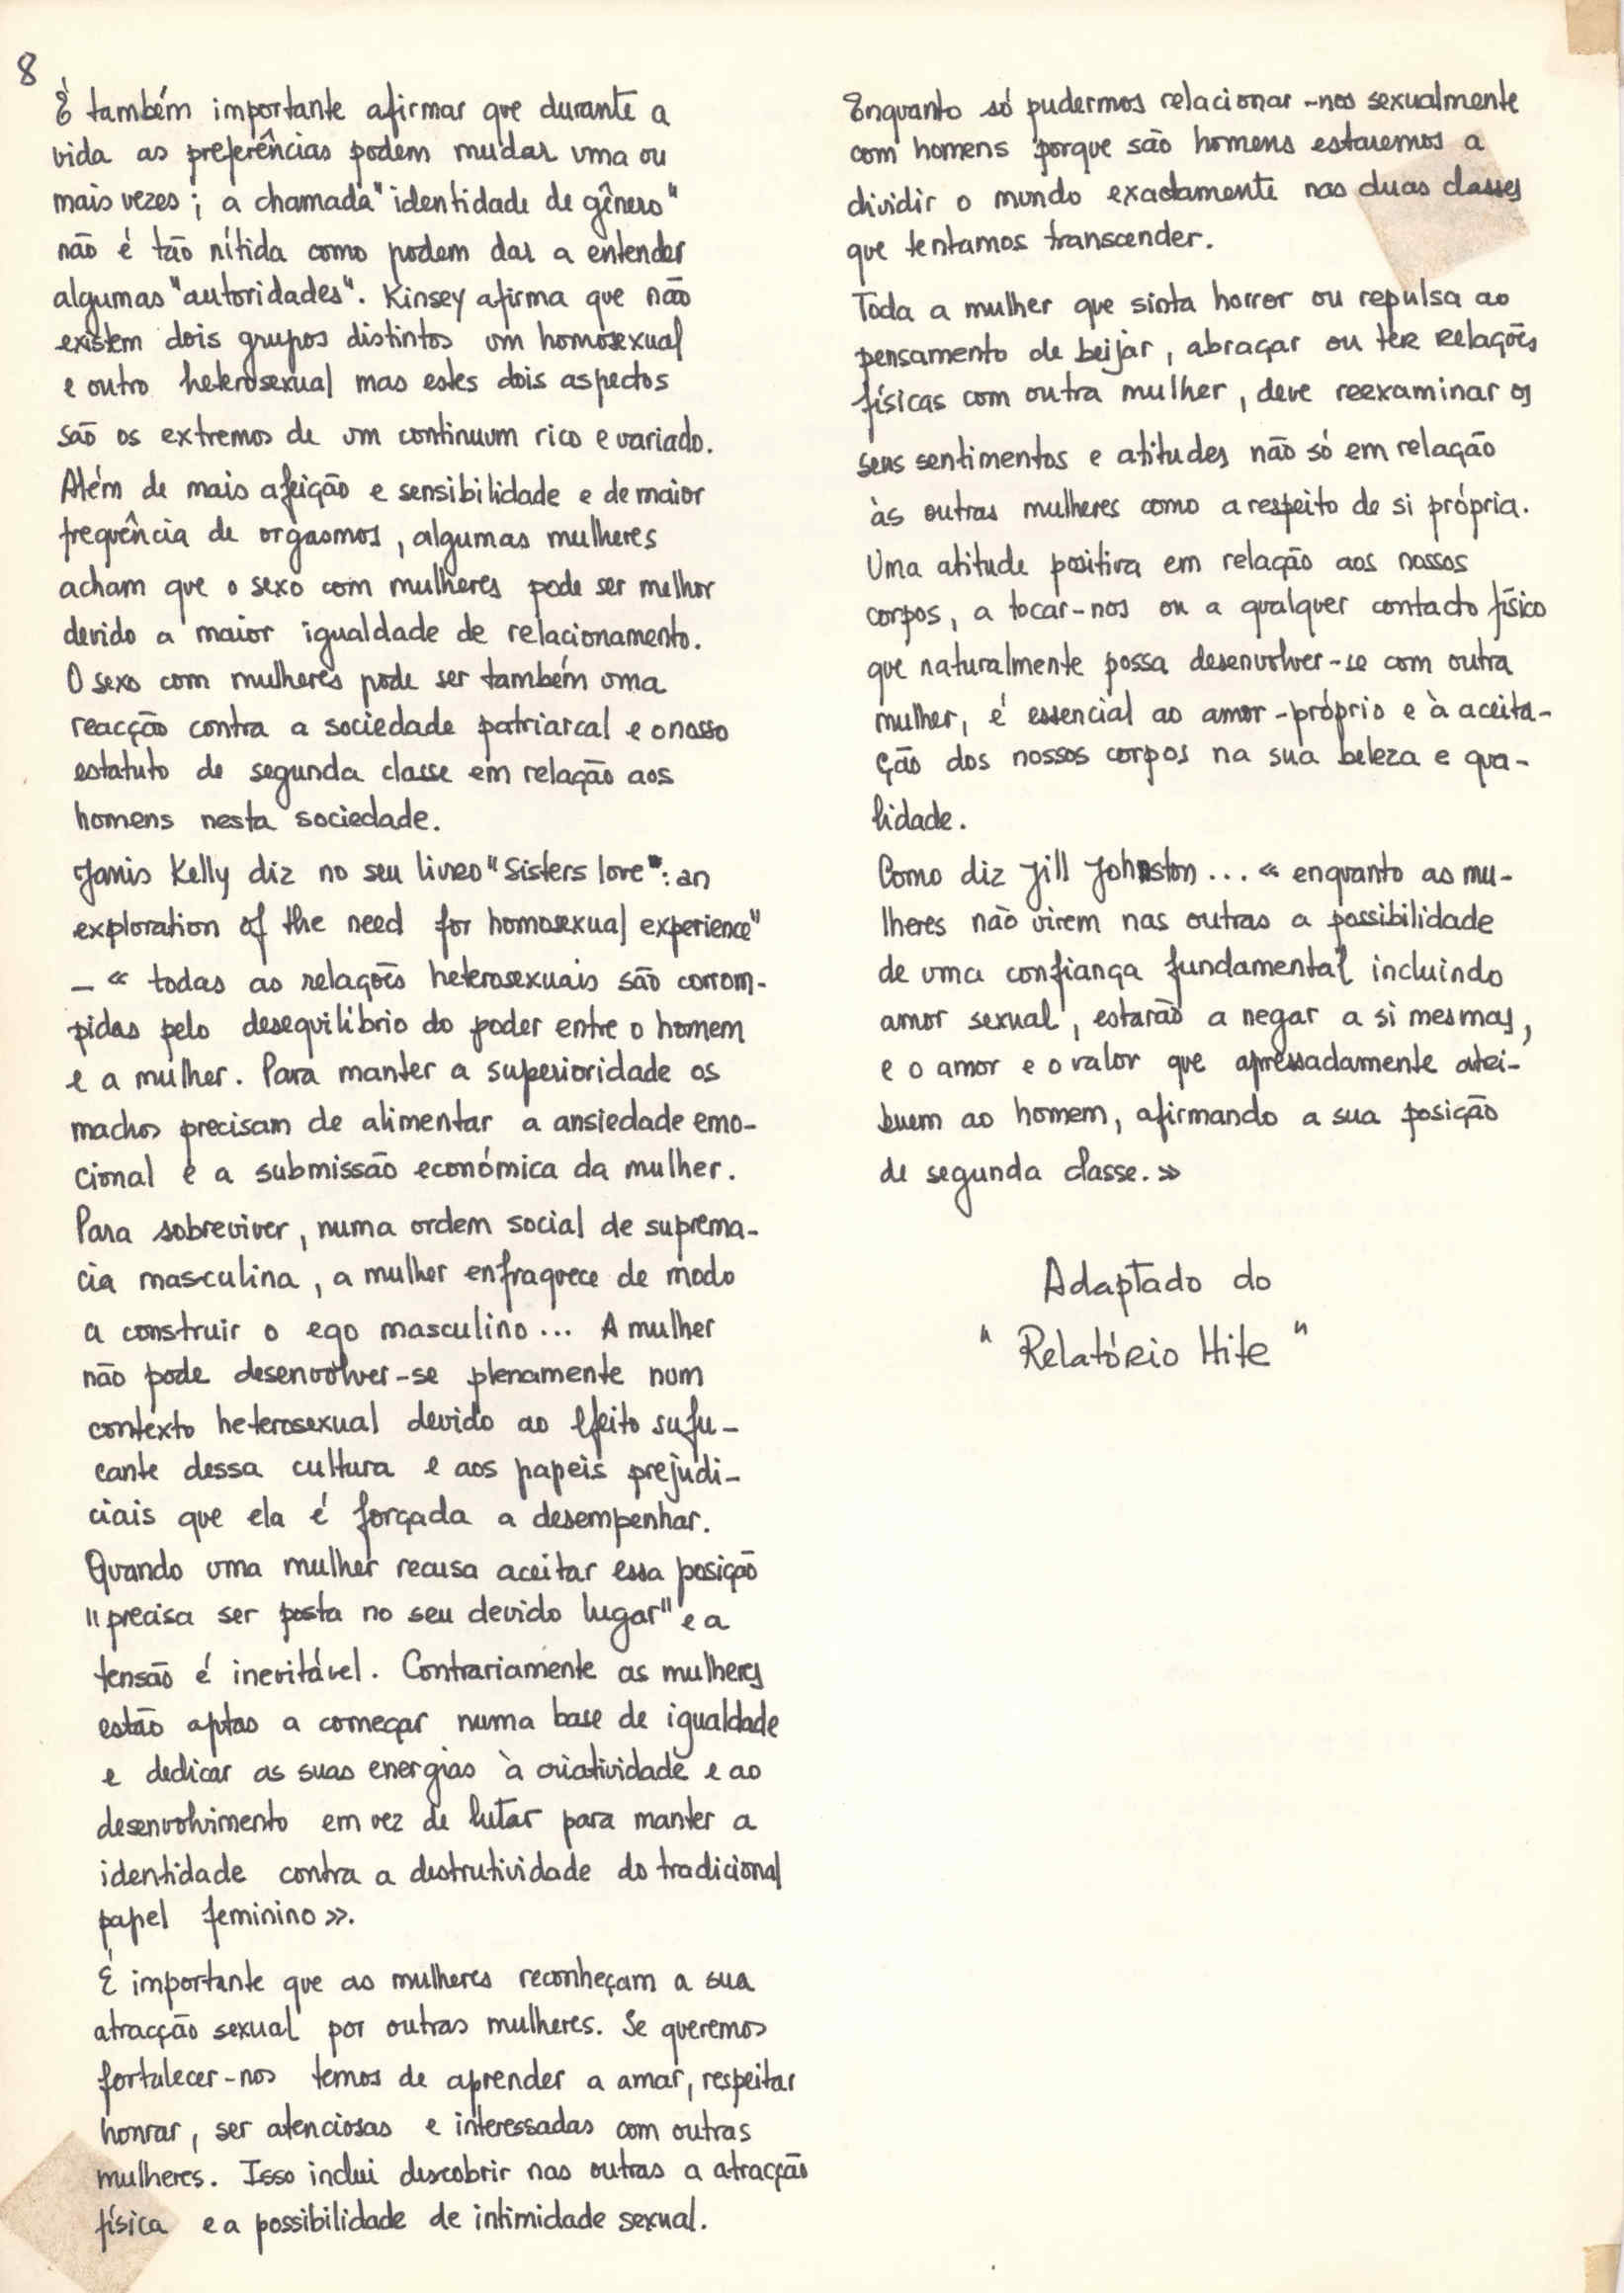 8
É também importante afirmar que durante a
vida as preferências podem mudar uma ou
mais vezes; a chamada "identidade de gênero"
não é tão nítida como podem dar a entender
algumas "autoridades". Kinsey afirma que não
existem dois grupos distintos um homosexual
e outro heterosexual mas estes dois aspectos
são os extremos de um continuum rico e variado.
Além de mais afeição e sensibilidade e de maior
frequência de orgasmos, algumas mulheres
acham que o sexo com mulheres pode ser melhor
devido a maior igualdade de relacionamento.
O sexo com mulheres pode ser também uma
reacção contra a sociedade patriarcal e o nosso
estatuto de segunda classe em relação aos
homens nesta sociedade.
Janis Kelly diz no seu livro "Sisters love": an
exploration of the need for homosexual experience"
– « todas as relações heterosexuais são corrom-
pidas pelo desequilíbrio do poder entre o homem
e a mulher. Para manter a superioridade os
machos precisam de alimentar a ansiedade emo-
cional e a submissão económica da mulher.
Para sobreviver, numa ordem social de suprema-
cia masculina, a mulher enfraquece de modo
a construir o ego masculino... A mulher
não pode desenvolver-se plenamente num
contexto heterosexual devido ao efeito sufu-
cante dessa cultura e aos papeis prejudi-
ciais que ela é forçada a desempenhar.
Quando uma mulher recusa aceitar essa posição
"precisa ser posta no seu devido lugar" e a
tensão é inevitável. Contrariamente as mulheres
estão aptas a começar numa base de igualdade
e dedicar as suas energias à criatividade e ao
desenvolvimento em vez de lutar para manter a
identidade contra a destrutividade do tradicional
papel feminino».
É importante que as mulheres reconheçam a sua
atracção sexual por outras mulheres. Se queremos
fortalecer-nos temos de aprender a amar, respeitar
honrar, ser atenciosas e interessadas com outras
mulheres. Isso inclui descobrir nas outras a atracção
física e a possibilidade de intimidade sexual.
Enquanto só pudermos relacionar-nos sexualmente
com homens porque são homens estaremos a
dividir o mundo exactamente nas duas classes
que tentamos transcender.
Toda a mulher que sinta horror ou repulsa ao
pensamento de beijar, abraçar ou ter relações
físicas com outra mulher, deve reexaminar os
seus sentimentos e atitudes não só em relação
às outras mulheres como a respeito de si própria.
Uma atitude positiva em relação aos nossos
corpos, a tocar-nos ou a qualquer contacto físico
que naturalmente possa desenvolver-se com outra
mulher, é essencial ao amor-próprio e à aceita-
ção dos nossos corpos na sua beleza e qua-
lidade.
Como diz Jill Johnston... « enquanto as mu-
lheres não virem nas outras a possibilidade
de uma confiança fundamental incluindo
amor sexual, estarão a negar a si mesmas,
e o amor e o valor que apressadamente atri-
buem ao homem, afirmando a sua posição
de segunda classe.»
Adaptado do
"Relatório Hite"